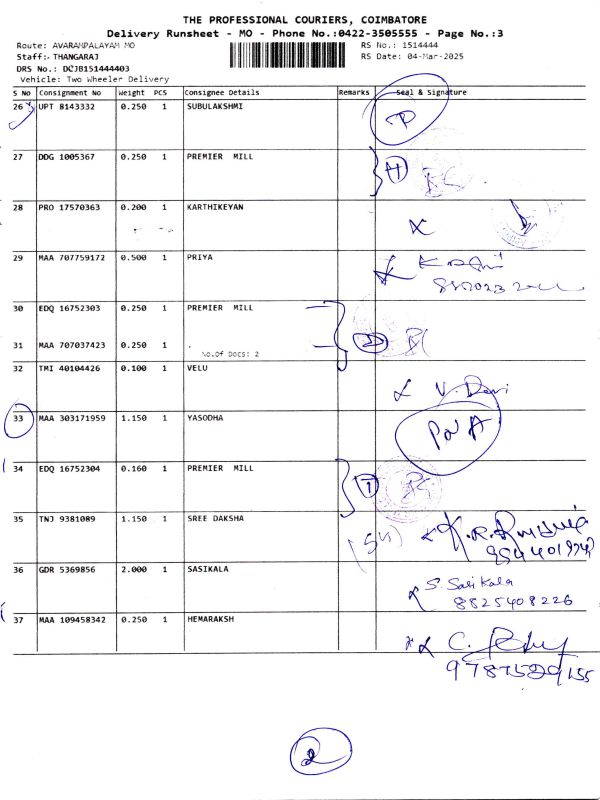 THE PROFESSIONAL COURIERS, COIMBATORE
Delivery Runsheet - MO - Phone No.:0422-3505555 - Page No.:3
Route: AVARAMPALAYAM MO RS No.: 1514444
Staff:- THANGARAJ RS Date: 04-Mar-2025
DRS No.: DCJB151444403
Vehicle: Two Wheeler Delivery
S No Consignment No Weight PCS Consignee Details Remarks Seal & Signature
26 UPT 8143332 0.250 1 SUBULAKSHMI
P
27 DDG 1005367 0.250 1 PREMIER MILL
28 PRO 17570363 0.200 1 KARTHIKEYAN
29 MAA 707759172 0.500 1 PRIYA
30 EDQ 16752303 0.250 1 PREMIER MILL
31 MAA 707037423 0.250 1 .
No.Of Docs: 2
32 TMI 40104426 0.100 1 VELU
V. Devi
33 MAA 303171959 1.150 1 YASODHA
34 EDQ 16752304 0.160 1 PREMIER MILL
1
35 TNJ 9381089 1.150 1 SREE DAKSHA
36 GDR 5369856 2.000 1 SASIKALA
S. Sasikala
8825408226
37 MAA 109458342 0.250 1 HEMARAKSH
C.
2